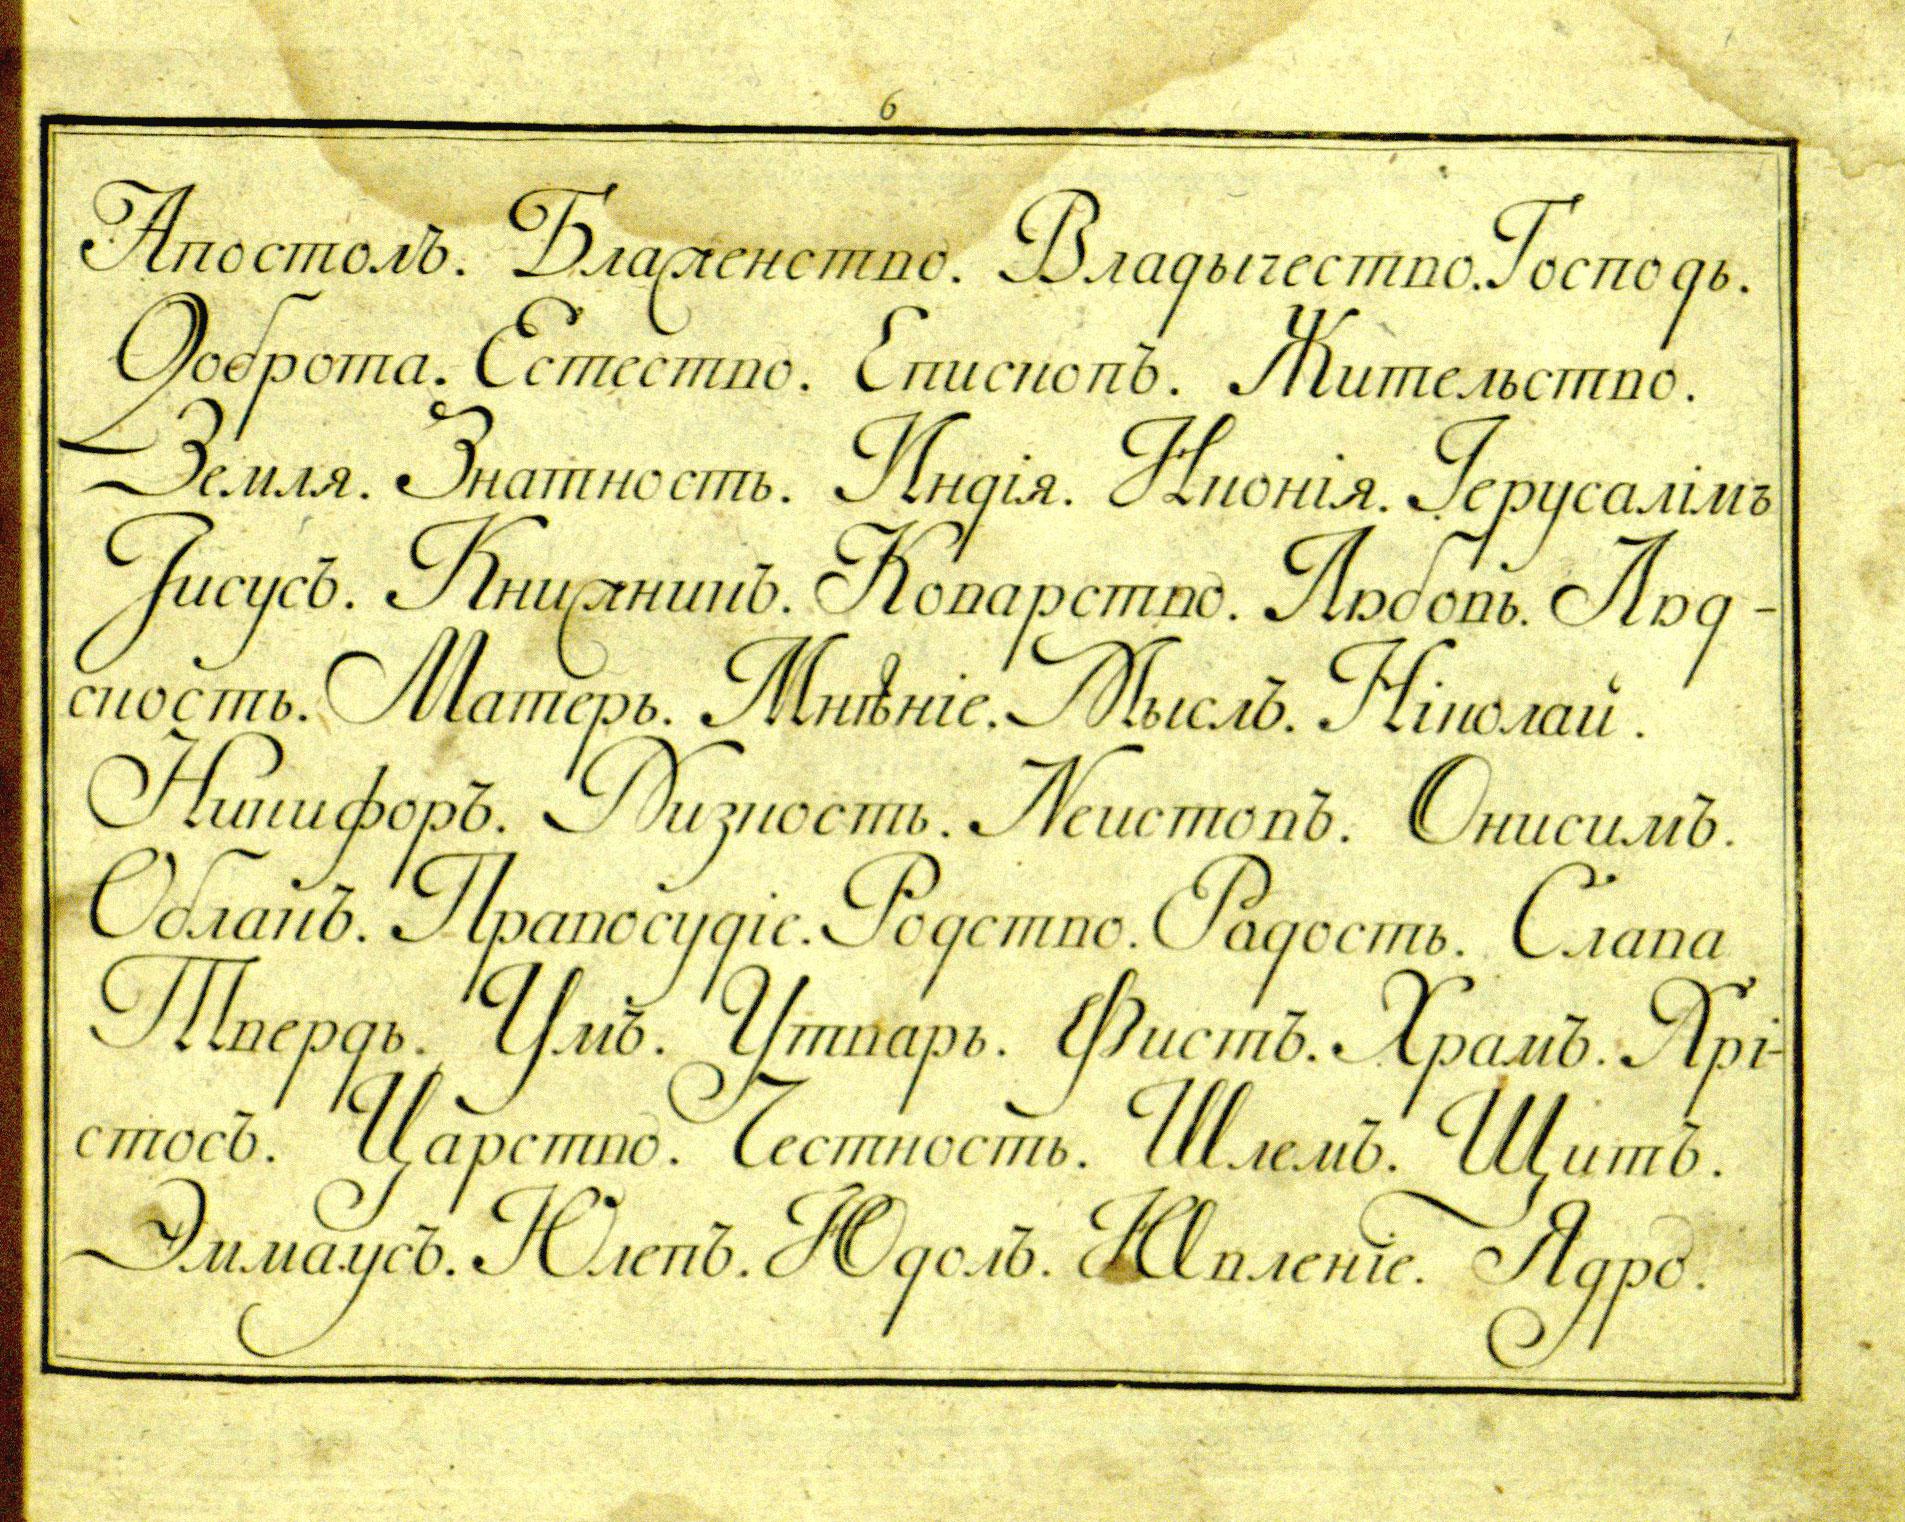 6
Апостолъ. Блаженство. Владычество. Господь.
Доброта. Естество. Епископъ. Жительство.
Земля. Знатность. Индія. Иконія. Іерусалімъ
Іисусъ. Книжникъ. Коварство. Любовь. Люд-
скость. Матерь. Мнѣніе. Мыслъ. Ніколай.
Никифоръ. Низкость. Неистовъ. Онисимъ.
Облакъ. Правосудіе. Родство. Радость. Слава
Твердь. Умъ. Утварь. Фистъ. Храмъ. Хрі-
стосъ. Царство. Честность. Шлемъ. Щитъ.
Эммаусъ. Юлепъ. Юдолъ. Ꙗвленіе. Ядро.